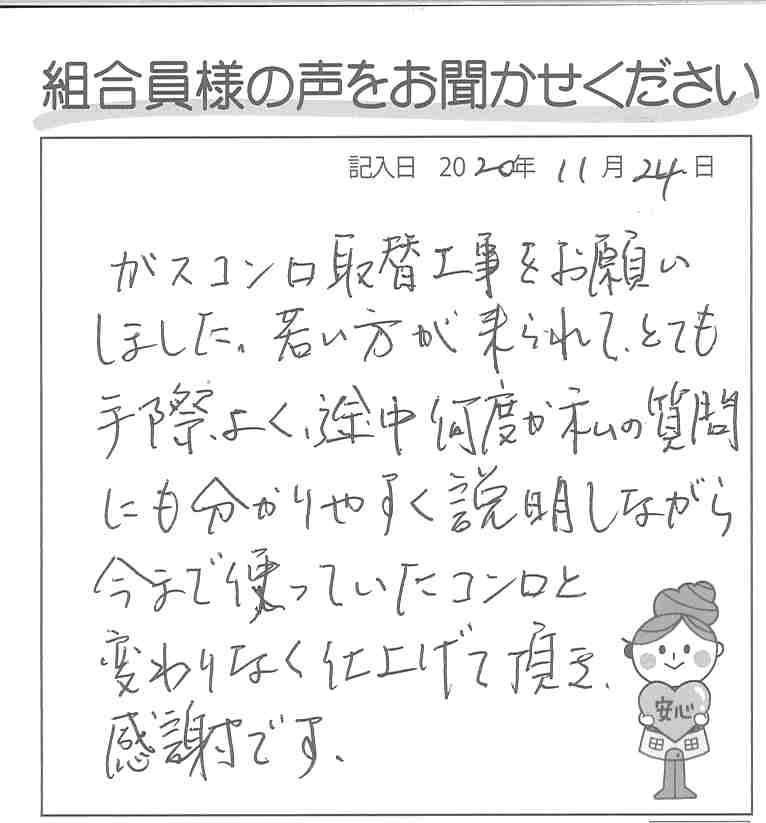 組合員様の声をお聞かせください
記入日 2020年 11月24日
ガスコンロ取替工事をお願い
しました。若い方が来られて、とても
手際、よく、途中何度か私の質問
にも分かりやすく説明しながら
今まで使っていたコンロと
変わりなく仕上げて頂き、
感謝です、
安心